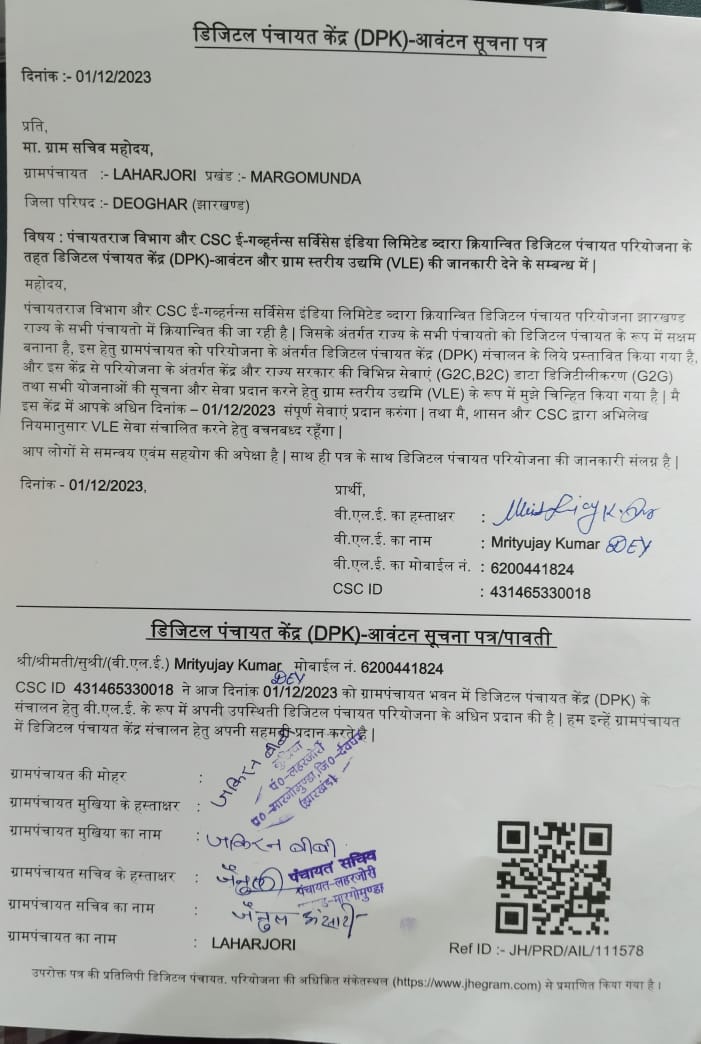 डिजिटल पंचायत केंद्र (DPK)-आवंटन सूचना पत्र
दिनांक :- 01/12/2023
प्रति,
मा. ग्राम सचिव महोदय,
ग्रामपंचायत :- LAHARJORI प्रखंड :- MARGOMUNDA
जिला परिषद :- DEOGHAR (झारखण्ड)
विषय : पंचायतराज विभाग और CSC ई-गव्हर्नन्स सर्विसेस इंडिया लिमिटेड व्दारा क्रियान्वित डिजिटल पंचायत परियोजना के
तहत डिजिटल पंचायत केंद्र (DPK)-आवंटन और ग्राम स्तरीय उद्यमि (VLE) की जानकारी देने के सम्बन्ध में |
महोदय,
पंचायतराज विभाग और CSC ई-गव्हर्नन्स सर्विसेस इंडिया लिमिटेड व्दारा क्रियान्वित डिजिटल पंचायत परियोजना झारखण्ड
राज्य के सभी पंचायतो में क्रियान्वित की जा रही है | जिसके अंतर्गत राज्य के सभी पंचायतो को डिजिटल पंचायत के रूप में सक्षम
बनाना है, इस हेतु ग्रामपंचायत को परियोजना के अंतर्गत डिजिटल पंचायत केंद्र (DPK) संचालन के लिये प्रस्तावित किया गया है,
और इस केंद्र से परियोजना के अंतर्गत केंद्र और राज्य सरकार की विभिन्न सेवाएं (G2C,B2C) डाटा डिजिटीलीकरण (G2G)
तथा सभी योजनाओं की सूचना और सेवा प्रदान करने हेतु ग्राम स्तरीय उद्यमि (VLE) के रूप में मुझे चिन्हित किया गया है | मै
इस केंद्र में आपके अधिन दिनांक – 01/12/2023 संपूर्ण सेवाएं प्रदान करुंगा | तथा मै, शासन और CSC द्वारा अभिलेख
नियमानुसार VLE सेवा संचालित करने हेतु वचनबध्द रहूँगा |
आप लोगों से समन्वय एवंम सहयोग की अपेक्षा है | साथ ही पत्र के साथ डिजिटल पंचायत परियोजना की जानकारी संलग्न है |
दिनांक - 01/12/2023,
प्रार्थी,
वी.एल.ई. का हस्ताक्षर :
वी.एल.ई. का नाम : Mrityujay Kumar DEY
वी.एल.ई. का मोबाईल नं. : 6200441824
CSC ID : 431465330018
डिजिटल पंचायत केंद्र (DPK)-आवंटन सूचना पत्र/पावती
श्री/श्रीमती/सुश्री/(वी.एल.ई.) Mrityujay Kumar DEY मोबाईल नं. 6200441824
CSC ID 431465330018 ने आज दिनांक 01/12/2023 को ग्रामपंचायत भवन में डिजिटल पंचायत केंद्र (DPK) के
संचालन हेतु वी.एल.ई. के रूप में अपनी उपस्थिती डिजिटल पंचायत परियोजना के अधिन प्रदान की है | हम इन्हें ग्रामपंचायत
में डिजिटल पंचायत केंद्र संचालन हेतु अपनी सहमती प्रदान करते है |
ग्रामपंचायत की मोहर :
मुखिया
पं०-लहरजोरी
प्र०-मारगोमुण्डा, जि०-देवघर
(झारखंड)
ग्रामपंचायत मुखिया के हस्ताक्षर : जकिरन बीबी
ग्रामपंचायत मुखिया का नाम : जकिरन बीबी
ग्रामपंचायत सचिव के हस्ताक्षर :
पंचायत सचिव
पंचायत-लहरजोरी
मारगोमुण्डा
ग्रामपंचायत सचिव का नाम : जैनुल अंसारी
ग्रामपंचायत का नाम : LAHARJORI
Ref ID :- JH/PRD/AIL/111578
उपरोक्त पत्र की प्रतिलिपी डिजिटल पंचायत. परियोजना की अधिक्रित संकेतस्थल (https://www.jhegram.com) से प्रमाणित किया गया है ।